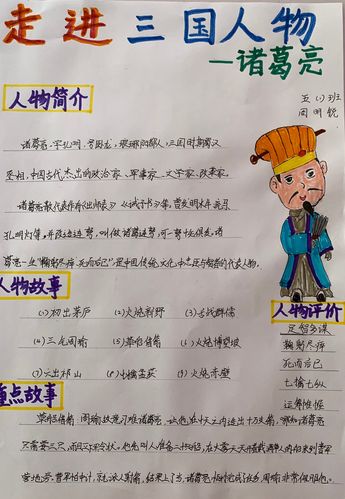 走进三国人物
—诸葛亮
五(1)班
周明锐
人物简介
诸葛亮，字孔明，号卧龙，琅琊阳都人，三国时期蜀汉
丞相，中国古代杰出的政治家、军事家、文学家、发明家。
诸葛亮散文代表作有《出师表》《诫子书》等，曾发明木牛流马
孔明灯等，并改造连弩，叫做诸葛连弩，可一弩十矢俱发。诸
葛亮一生"鞠躬尽瘁，死而后已"是中国传统文化中忠臣与智者的代表人物。
人物故事
(1)初出茅庐 (2)火烧新野 (3)舌战群儒
(4)三气周瑜 (5)草船借箭 (6)火烧博望坡
(7)六出祁山 (8)七擒孟获 (9)火烧赤壁
人物评价
足智多谋
鞠躬尽瘁
死而后已
七擒七纵
运筹帷幄
重点故事
草船借箭：周瑜故意刁难诸葛亮，让他在十天之内造出十万支箭，
只需要三天，而且立下军令状，